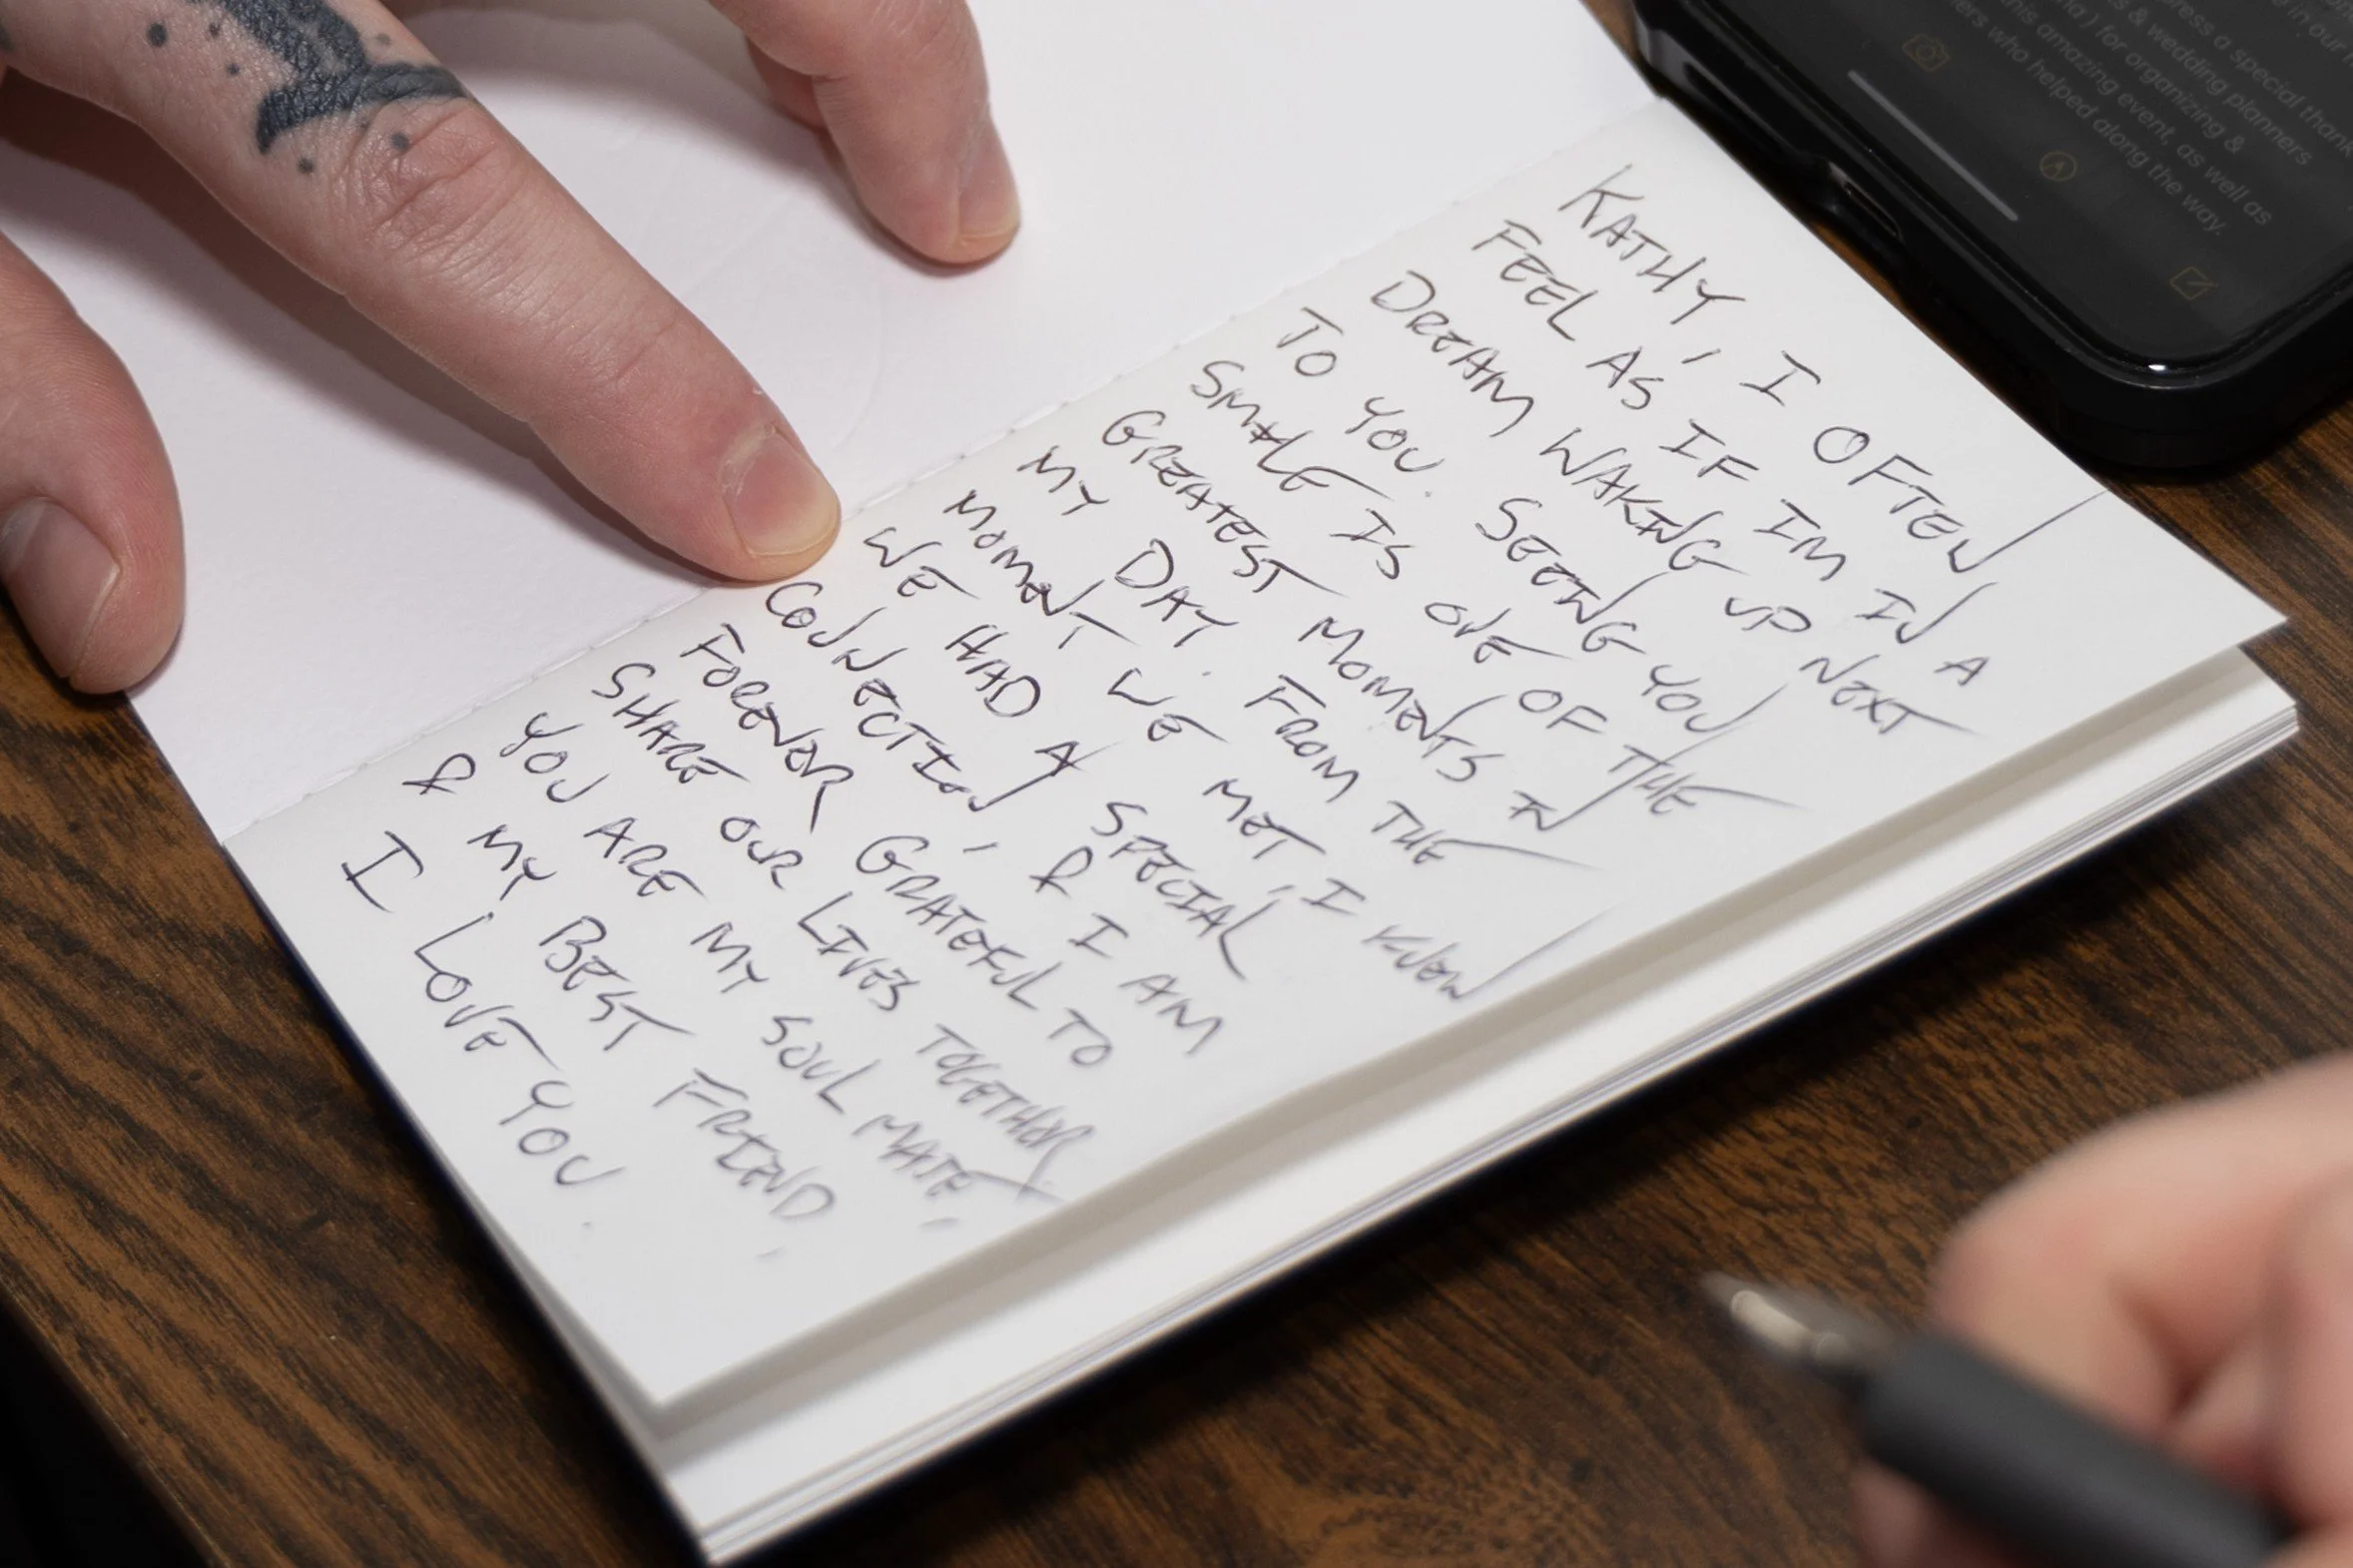 KATHY, I OFTEN
FEEL AS IF IM IN A
DREAM WAKING UP NEXT
TO YOU. SEEING YOU
SMILE IS ONE OF THE
GREATEST MOMENTS IN
MY DAY. FROM THE
MOMENT WE MET, I KNEW
WE HAD A SPECIAL
CONNECTION, & I AM
FOREVER GRATEFUL TO
SHARE OUR LIVES TOGETHER.
YOU ARE MY SOUL MATE,
& MY BEST FRIEND.
I LOVE YOU.
press a special thank
& wedding planners
) for organizing &
this amazing event, as well as
ers who helped along the way.